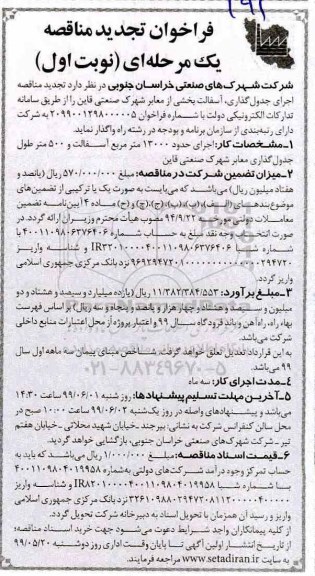 فراخوان تجدید مناقصه
یک مرحله‌ای (نوبت اول)
شرکت شهرک‌های صنعتی خراسان جنوبی در نظر دارد تجدید مناقصه
اجرای جدول‌گذاری، آسفالت بخشی از معابر شهرک صنعتی قاین را از طریق سامانه
تدارکات الکترونیکی دولت با شماره فراخوان ۲۰۹۹۰۰۱۲۹۸۰۰۰۰۰۵ به شرکت
دارای رتبه‌بندی از سازمان برنامه و بودجه در رشته راه واگذار نماید.
۱ـ مشخصات کار: اجرای حدود ۱۳۰۰۰ متر مربع آسفالت و ۵۰۰ متر طول
جدول‌گذاری معابر شهرک صنعتی قاین
۲ـ میزان تضمین شرکت در مناقصه: مبلغ ۵۷۰/۰۰۰/۰۰۰ ریال (پانصد و
هفتاد میلیون ریال) می‌باشد که می‌بایست به صورت یک یا ترکیبی از تضمین‌های
موضوع بندهای (الف)، (ب)، (پ)، (ج)، (چ) و (ح) ماده ۴ آیین‌نامه تضمین
معاملات دولتی مورخه ۹۴/۹/۲۲ مصوب هیأت محترم وزیران ارائه گردد. در
صورت انتخاب وجه نقد مبلغ به حساب شماره ۴۰۰۱۱۰۹۸۰۶۳۷۶۴۰۶ با
شماره شبا و شناسه واریز
نزد بانک مرکزی جمهوری اسلامی
واریز گردد.
۳ـ مبلغ برآورد: ۱۱/۳۸۲/۳۸۴/۵۵۳ ریال (یازده میلیارد و سیصد و هشتاد و دو
میلیون و سیصد و هشتاد و چهار هزار و پانصد و پنجاه و سه ریال) بر اساس فهرست
بهاء راه، راه‌آهن و باند فرودگاه سال ۹۹ و اعتبار پروژه از محل اعتبارات منابع داخلی
شرکت می‌باشد.
به این قرارداد تعدیل تعلق خواهد گرفت. شاخص مبنای پیمان سه ماهه اول سال
۹۹ می‌باشد.
۴ـ مدت اجرای کار: سه ماه
۵ـ آخرین مهلت تسلیم پیشنهادها: روز شنبه ۹۹/۰۶/۰۱ ساعت ۱۴:۳۰
می‌باشد و پیشنهادهای واصله در روز یک‌شنبه ۹۹/۰۶/۰۲ ساعت ۱۰:۰۰ صبح در
محل سالن کنفرانس شرکت به نشانی: بیرجند ـ خیابان شهید محلاتی ـ خیابان هفتم
تیر ـ شرکت شهرک‌های صنعتی خراسان جنوبی، بازگشایی خواهد گردید.
۶ـ قیمت اسناد مناقصه: مبلغ ۱/۰۰۰/۰۰۰ ریال می‌باشد که باید به
حساب تمرکز وجوه درآمد شرکت‌های دولتی به‌شماره ۴۰۰۱۱۰۹۸۰۴۰۱۹۹۵۸
با شماره شبا و شناسه واریز
نزد بانک مرکزی جمهوری اسلامی
واریز و رسید آن همزمان با تحویل اسناد به دبیرخانه شرکت تحویل گردد.
از کلیه پیمانکاران واجد شرایط دعوت می‌شود جهت خرید اسناد مناقصه؛
از تاریخ انتشار اولین آگهی تا پایان وقت اداری روز دوشنبه ۹۹/۰۵/۲۰
به سایت www.setadiran.ir مراجعه فرمایند.
۰۲۱-۸۸۳۴۹۶۷۰-۵